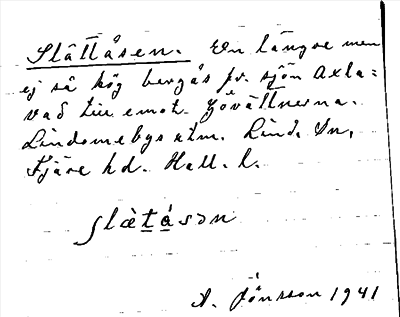 Slättåsen. En längre men
ej så hög bergås fr. sjön Axla=
vad till emot Gövättnerna.
Lindomebys utm. Lind. Sn,
Fjäre hd. Hall. l.
ʃlὲt̲á̲sən
A. Jönsson 1941